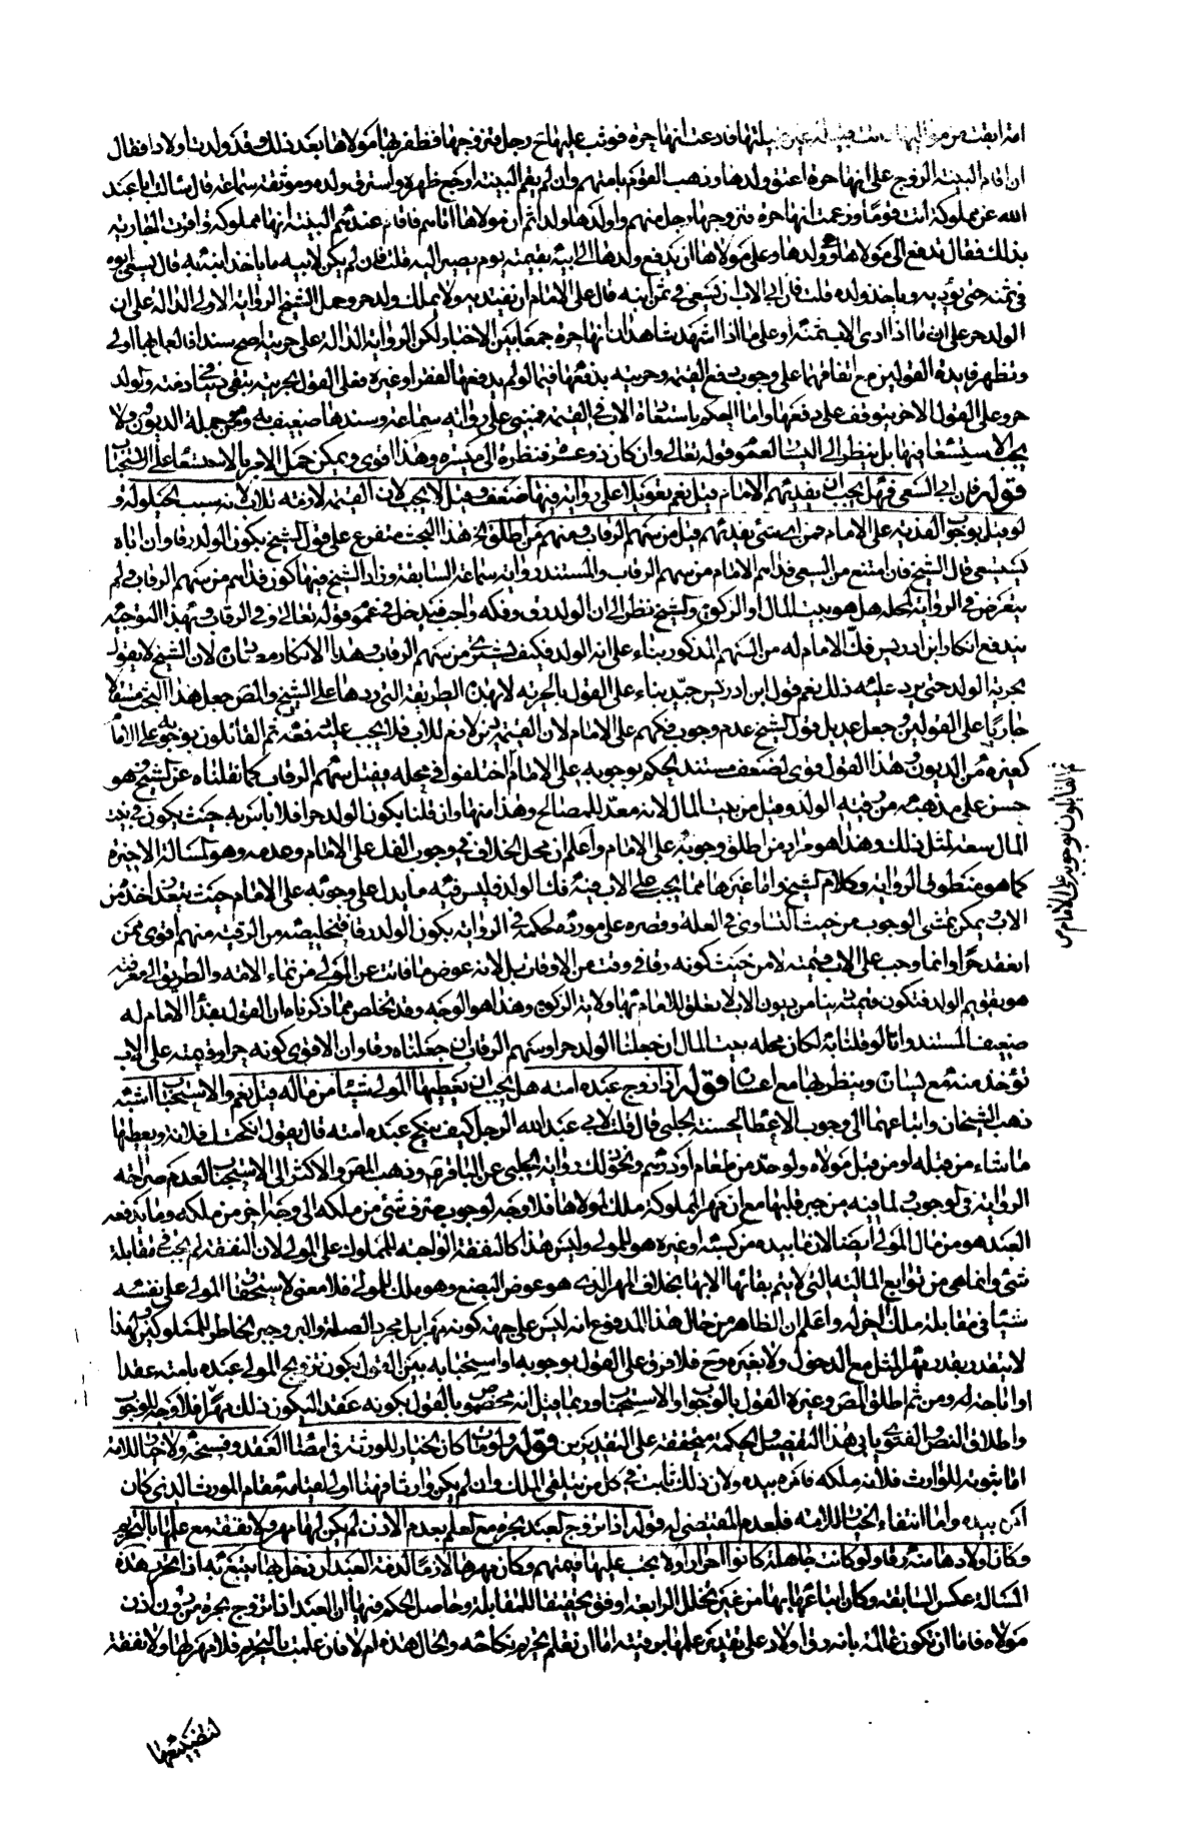 امة ابقت من مواليها فاتت قبيلة غير قبيلتها فادعت انها حرة فوثب عليها ح رجل فتزوجها فظفر بها مولاها بعد ذلك وقد ولدت اولادا فقال
ان اقام البينة الزوج على انها حرة اعتق ولدها وذهب القوم بامتهم وان لم يقم البينة اوجع ظهره واسترق ولده وموثقة سماعة قال سالت ابا عبد
الله عن مملوكة اتت قوما وزعمت انها حرة فتزوجها رجل منهم واولدها ولدا ثم ان مولاها اتاهم فاقام عندهم البينة انها مملوكة واقرت الجارية
بذلك فقال تدفع الى مولاها هي وولدها وعلى مولاها ان يدفع ولدها الى ابيه بقيمته يوم يصير اليه قلت فان لم يكن لابيه ما ياخذ ابنه به قال يسعى ابوه
في ثمنه حتى يؤديه وياخذ ولده قلت فان ابى الاب ان يسعى في ثمن ابنه قال على الامام ان يفتديه ولا يملك ولد حر وحمل الشيخ الرواية الاولى الدالة على ان
الولد حر على ان ما اذا ادى الاب ثمنه او على ما اذا شهد شاهدان انها حرة جمعا بين الاخبار ولكن الرواية الدالة على حريته اصح سندا فالعمل بها اولى
وتظهر فايدة القولين مع اتفاقهما على وجوب دفع القيمة وحريته بدفعها فيما لو لم يدفعها لفقر او غيره فعلى القول بالحرية تبقى دينا في ذمته والولد
حر وعلى القول الاخر يتوقف على دفعها واما الحكم باستسعاء الاب في القيمة فمبني على رواية سماعة وسندها ضعيف به وهي من جملة الديون ولا
يجب الاستسعاء فيها بل ينظر الى اليسار لعموم قوله تعالى وان كان ذو عسرة فنظرة الى ميسرة وهذا اقوى ويمكن حمل الامر بالاستسعاء على الاستحباب
قوله فان ابى السعي فهل يجب ان يفديهم الامام قيل نعم تعويلا على رواية فيها ضعف وقيل لا يجب لان القيمة لازمة للاب لانه سبب الحيلولة و
لو قيل بوجوب الفدية على الامام فمن اي شيء يفديهم قيل من سهم الرقاب ومنهم من اطلق الخ هذا البحث متفرع على قول الشيخ بكون الولد رقا وان اباه
يستسعى قال الشيخ فان امتنع من السعي فداهم الامام من سهم الرقاب والمستند رواية سماعة السابقة وزاد الشيخ فيها كون فداهم من سهم الرقاب ولم
يتعرض في الرواية لمحله هل هو بيت المال او الزكوة والشيخ نظر الى ان الولد رق وفكه واجب فيدخل في عموم قوله تعالى وفي الرقاب وبهذا التوجيه
يندفع انكار ابن ادريس فك الامام له من السهم المذكور بناء على انه الولد فكيف يشترى من سهم الرقاب وهذا الانكار لان الشيخ لا يقول
بحرية الولد حتى يرد عليه ذلك نعم قول ابن ادريس جيد بناء على القول بالحرية لا بهذه الطريقة التي ردها على الشيخ والمص جعل هذا البحث مستقلا
جاريا على القولين وجعل عديل قول الشيخ عدم وجوب فكهم على الامام لان القيمة دين لازم للاب فلا يجب عليه دفعه ثم القائلون بوجوبه على الامام
كغيره من الديون وهذا القول قوى لضعف مستند الحكم بوجوبه على الامام اختلفوا في محله فقيل سهم الرقاب كما نقلناه عن الشيخ وهو
حسن على مذهبه من رقية الولد وقيل من بيت المال لانه معد للمصالح وهذا منها وان قلنا بكون الولد حرا فلا باس به حيث يكون في بيت
المال سعة لمثل ذلك وهذا هو مراد من اطلق وجوبه على الامام واعلم ان محل الخلاف في وجوب الفك على الامام وعدمه وهو المسالة الاخيرة
كما هو منطوق الرواية وكلام الشيخ واما غيرها مما يجب على الاب فيه فك الولد فليس فيه ما يدل على وجوبه على الامام حيث يتعذر اخذه من
الاب ويمكن تمشي الوجوب من حيث التساوي في العلة وقصره على مورده لحكمه في الرواية بكون الولد رقا فتخليصه من الرقية منهم اقوى ممن
انعقد حرا وانما وجب على الاب قيمته لا من حيث كونه رقا في وقت من الاوقات بل لانه عوض ما فات عن المولى من نماء الامة والطريق الى معرفته
هو تقويم الولد فتكون قيمته دينا من ديون الاب لا تعلق للامام بها ولا بة الزكوة وهذا هو الوجه وقد تخلص مما ذكرناه ان القول بفداء الامام له
ضعيف المستند وانا لو قلنا به لكان محله بيت المال ان جعلنا الولد حرا وسهم الرقاب ان جعلناه رقا وان الاقوى كونه حرا وقيمته على الاب
تؤخذ منه مع يساره وينظر بها مع اعساره قوله اذا زوج عبده امته هل يجب ان يعطيها المولى شيئا من ماله قيل نعم والاستحباب اشبه
ذهب الشيخان واتباعهما الى وجوب الاعطاء لحسنة الحلبي قال قلت لابي عبد الله الرجل كيف ينكح عبده امته قال يقول انكحتك فلانة ويعطيها
ما شاء من قبله او من قبل مولاه ولو مدا من طعام او درهم ونحو ذلك ورواية الحلبي عن الباقر وذهب المص والاكثر الى الاستحباب لعدم صراحة
الرواية في الوجوب ولما فيه من جبر قلبها مع ان مهر المملوكة ملك لمولاها فلا وجه لوجوب صرف شيء من ملكه الى وجه اخر من ملكه وما يدفعه
العبد هو من مال المولى ايضا لان ما بيده من كسبه او غيره هو للمولى وليس هذا كالنفقة الواجبة للمملوك على المولى لان النفقة لم يجب في مقابلة
شيء وانما هي من توابع المالية التي لا يتم بقائها الا بها بخلاف المهر الذي هو عوض البضع وهو ملك للمولى فلا معنى لاستحقاق المولى على نفسه
شيئا في مقابلة ملك اخر له واعلم ان الظاهر من حال هذا المدفوع انه ليس على جهة كونه مهرا بل مجرد الصلة والبر وجبر الخاطر للمملوكين ولهذا
لا يتقدر بقدر مهر المثل مع الدخول ولا بغيره وح فلا فرق على القول بوجوبه او استحبابه بين القول بكون تزويج المولى عبده بامته عقدا
او اباحة له ومن ثم اطلق المص وغيره القول بالوجوب او الاستحباب وربما قيل انه مخصوص بالقول بكونه عقدا ليكون ذلك مهرا فلا وجه للوجوب
واطلاق النص والفتوى يابى هذا التفصيل والحكمة متحققة على التقديرين قوله ولو مات كان الخيار للورثة في امضاء العقد وفسخه ولا خيار للامة
اما ثبوته للوارث فلانه ملكه فامره بيده ولان ذلك ثابت في كل من تلقى الملك وان لم يكن وارثا فهنا اولى لقيامه مقام المورث الذي كان
امره بيده واما انتفاء الخيار للامة فلعدم المقتضى له قوله اذا تزوج العبد بحرة مع العلم بعدم الاذن لم يكن لها مهر ولا نفقة مع علمها بالتحريم
وكان اولادها منه رقا ولو كانت جاهلة كانوا احرارا ولا يجب عليها قيمتهم وكان مهرها لازما لذمة العبد ان دخل بها يتبع به اذا تحرر هذه
المسالة عكس السابقة وكان اتباعها بها من غير تخلل الرابعة اوفق تحقيقا للمقابلة وحاصل الحكم فيها ان العبد اذا تزوج بحرة من دون اذن
مولاه فاما ان تكون عالمة بانه رق اولا وعلى تقدير علمها برقيته اما ان تعلم بتحريم نكاحه والحال هذه ام لا فان علمت بالتحريم فلا مهر لها ولا نفقة
ثم القائلون بوجوبه على الامام ص
لتضييعها